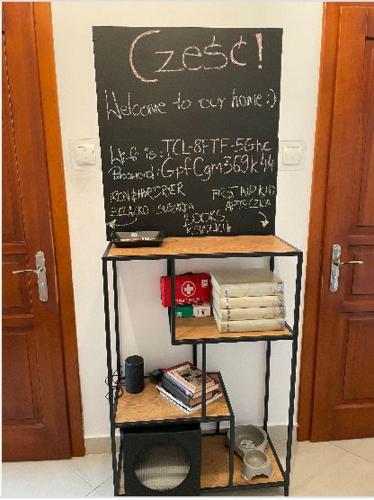 Cześć!
Welcome to our home :)
Wi-fi is: TCL-8FTF-5Ghc
Password: GpfCgm369k44
IRON & HAIRDRYER FIRST AID KID
ŻELAZKO I SUSZARKA APTECZKA
BOOKS
KSIĄŻKI